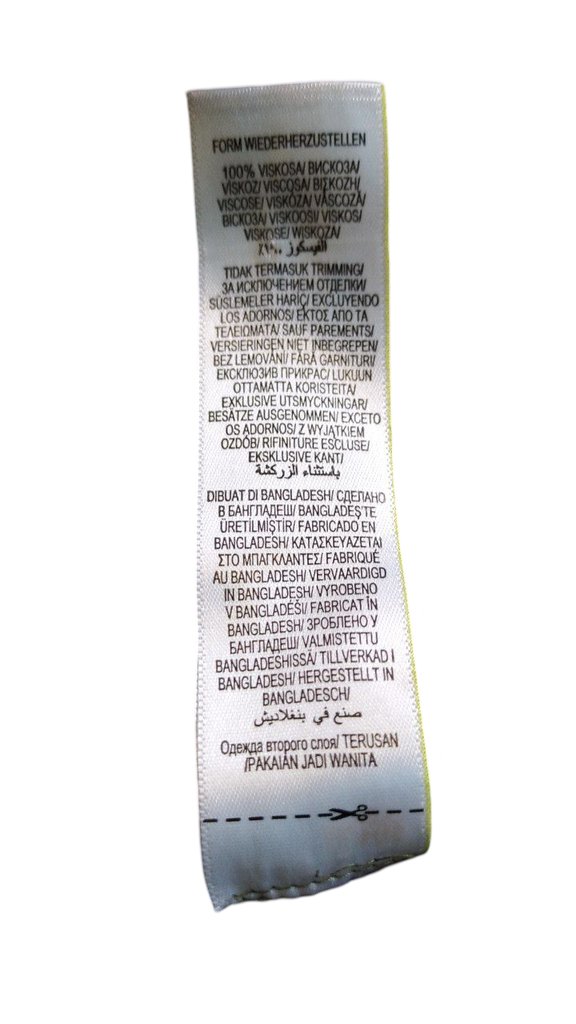 FORM WIEDERHERZUSTELLEN
100% VISKOSA/ ВИСКОЗА/
VİSKOZ/ VISCOSA/ ΒΙΣΚΟΖΗ/
VISCOSE/ VISKÓZA/ VÂSCOZĂ/
ВІСКОЗА/ VISKOOSI/ VISKOS/
VISKOSE/ WISKOZA/
الفيسكوز ١٠٠٪
TIDAK TERMASUK TRIMMING/
ЗА ИСКЛЮЧЕНИЕМ ОТДЕЛКИ/
SÜSLEMELER HARİÇ/ EXCLUYENDO
LOS ADORNOS/ ΕΚΤΟΣ ΑΠΟ ΤΑ
ΤΕΛΕΙΩΜΑΤΑ/ SAUF PAREMENTS/
VERSIERINGEN NIET INBEGREPEN/
BEZ LEMOVÁNÍ/ FĂRĂ GARNITURI/
ЕКСКЛЮЗИВ ПРИКРАС/ LUKUUN
OTTAMATTA KORISTEITA/
EXKLUSIVE UTSMYCKNINGAR/
BESÄTZE AUSGENOMMEN/ EXCETO
OS ADORNOS/ Z WYJĄTKIEM
OZDÓB/ RIFINITURE ESCLUSE/
EKSKLUSIVE KANT/
باستثناء الزركشة
DIBUAT DI BANGLADESH/ СДЕЛАНО
В БАНГЛАДЕШ/ BANGLADEŞ'TE
ÜRETİLMİŞTİR/ FABRICADO EN
BANGLADESH/ ΚΑΤΑΣΚΕΥΑΖΕΤΑΙ
ΣΤΟ ΜΠΑΓΚΛΑΝΤΕΣ/ FABRIQUÉ
AU BANGLADESH/ VERVAARDIGD
IN BANGLADESH/ VYROBENO
V BANGLADÉŠI/ FABRICAT ÎN
BANGLADESH/ ЗРОБЛЕНО У
БАНГЛАДЕШ/ VALMISTETTU
BANGLADESHISSA/ TILLVERKAD I
BANGLADESH/ HERGESTELLT IN
BANGLADESCH/
صنع في بنغلاديش
Одежда второго слоя/ TERUSAN
/PAKAIAN JADI WANITA